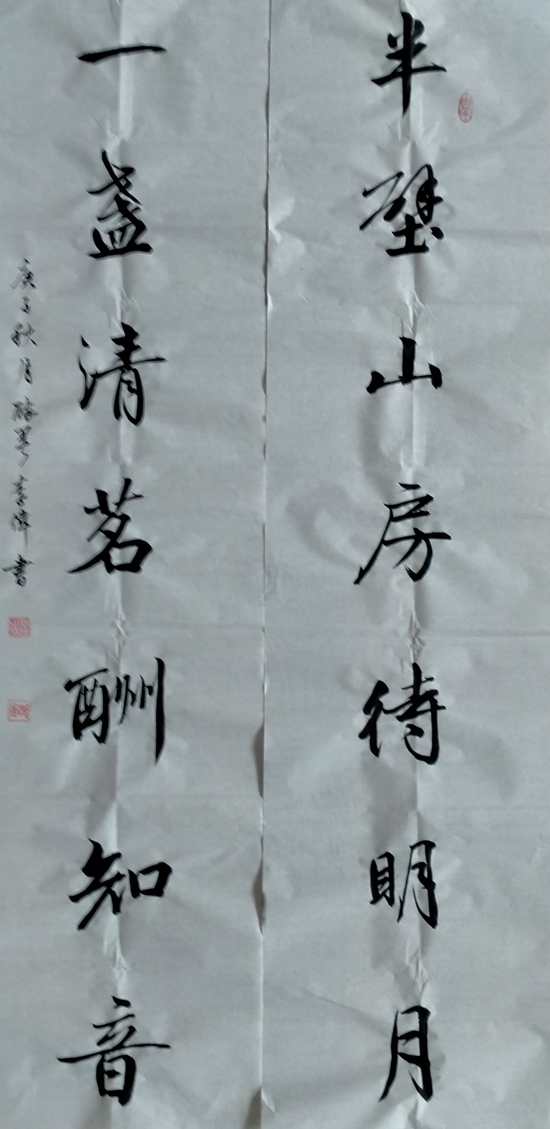 半壁山房待明月
一盏清茗酬知音
庚子秋月 李伟书